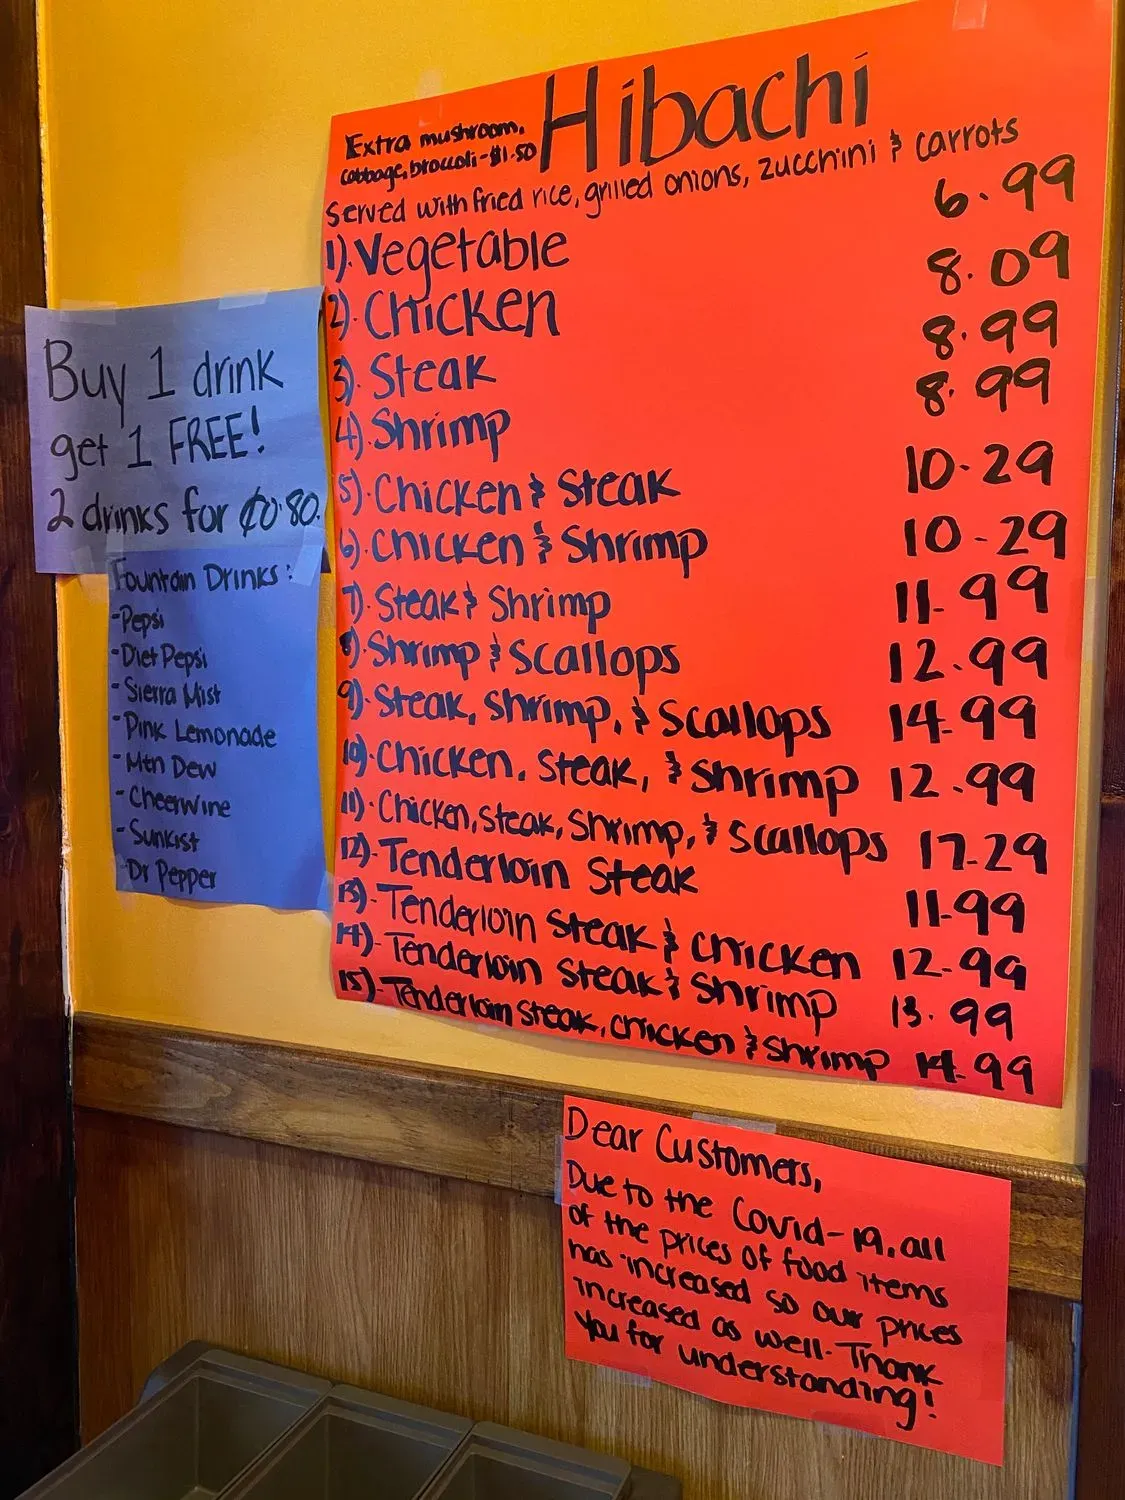 Hibachi
Extra mushroom,
cabbage, broccoli - $1.50
Served with fried rice, grilled onions, zucchini & carrots
1). Vegetable 6.99
2). Chicken 8.09
3). Steak 8.99
4). Shrimp 8.99
5). Chicken & Steak 10.29
6). Chicken & Shrimp 10.29
7). Steak & Shrimp 11.99
8). Shrimp & Scallops 12.99
9). Steak, Shrimp, & Scallops 14.99
10). Chicken, Steak, & Shrimp 12.99
11). Chicken, Steak, Shrimp, & Scallops 17.29
12). Tenderloin Steak 11.99
13). Tenderloin Steak & Chicken 12.99
14). Tenderloin Steak & Shrimp 13.99
15). Tenderloin Steak, Chicken & Shrimp 14.99
Buy 1 drink
get 1 FREE!
2 drinks for ¢0.80
Fountain Drinks:
-Pepsi
-Diet Pepsi
-Sierra Mist
-Pink Lemonade
-Mtn Dew
-Cheerwine
-Sunkist
-Dr Pepper
Dear Customers,
Due to the Covid-19, all
of the prices of food items
has increased so our prices
increased as well. Thank
you for understanding!